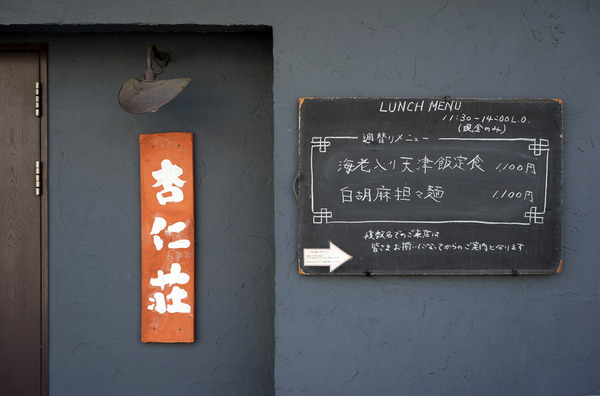 杏仁荘
LUNCH MENU
11:30-14:00L.O.
(現金のみ)
週替りメニュー
海老入り天津飯定食 1,100円
白胡麻担々麺 1,100円
複数名でのご来店は
皆さまお揃いになってからのご案内となります